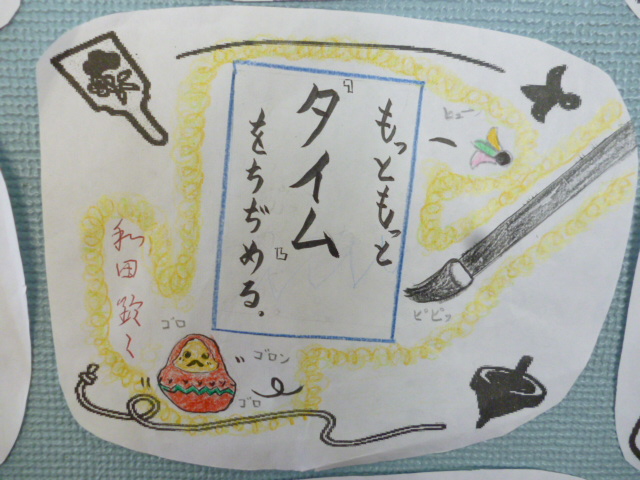 もっともっと
『タイム』
をちぢめる。
ヒュー
ピピッ
和田
ゴロ
ゴロン
ゴロ